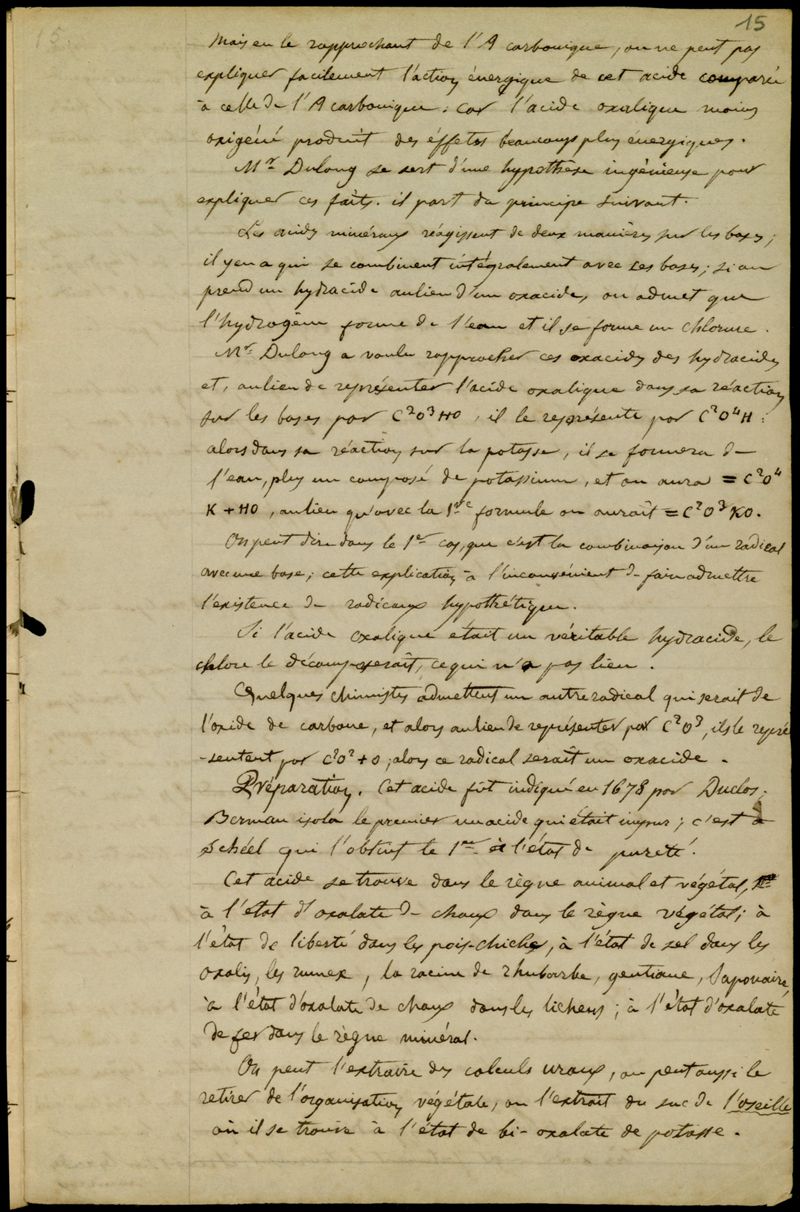 15
Mais en le rapprochant de l'A carbonique, on ne peut pas
expliquer facilement l'action énergique de cet acide comparée
à celle de l'A carbonique, car l'acide oxalique moins
oxigéné produit des éffets beaucoup plus énergiques.
Mr Dulong se sert d'une hypothèse ingénieuse pour
expliquer ces faits. il part du principe suivant.
Les acides minéraux réagissent de deux manières sur les bases;
il y en a qui se combinent intégralement avec les bases; si on
prend un hydracide au lieu d'un oxacide, on admet que
l'hydrogène forme de l'eau et il se forme un chlorure.
Mr Dulong a voulu rapprocher ces oxacides des hydracides
et, au lieu de représenter l'acide oxalique dans sa réaction
sur les bases par C²O³HO, il le représente par C²O⁴H:
alors dans sa réaction sur la potasse, il se formera de
l'eau, plus un composé de potassium, et on aura = C²O⁴
K + HO, au lieu qu'avec la 1re formule on aurait = C²O³KO.
On peut dire dans le 1er cas, que c'est la combinaison d'un radical
avec une base; cette explication a l'inconvénient de faire admettre
l'existence de radicaux hypothétiques.
Si l'acide oxalique était un véritable hydracide, le
chlore le décomposerait, ce qui n'a pas lieu.
Quelques chimistes admettent un autre radical qui serait de
l'oxide de carbone, et alors au lieu de représenter par C²O³, ils le repré
-sentent par C²O²+O; alors ce radical serait un oxacide.
Préparation. Cet acide fut indiqué en 1678 par Duclos;
Berman isola le premier un acide qui était impur; c'est à
Schéel qui l'obtint le 1er à l'état de pureté.
Cet acide se trouve dans le règne animal et végétal,
à l'état d'oxalate de chaux dans le règne végétal; à
l'état de liberté dans les pois-chiches, à l'état de sel dans les
oxalis, les rumex, la racine de rhubarbe, gentiane, saponaire,
à l'état d'oxalate de chaux dans les lichens; à l'état d'oxalate
de fer dans le règne minéral.
On peut l'extraire des calculs uraux, on peut aussi le
retirer de l'organisation végétale, on l'extrait du suc de l'oseille
où il se trouve à l'état de bi-oxalate de potasse.